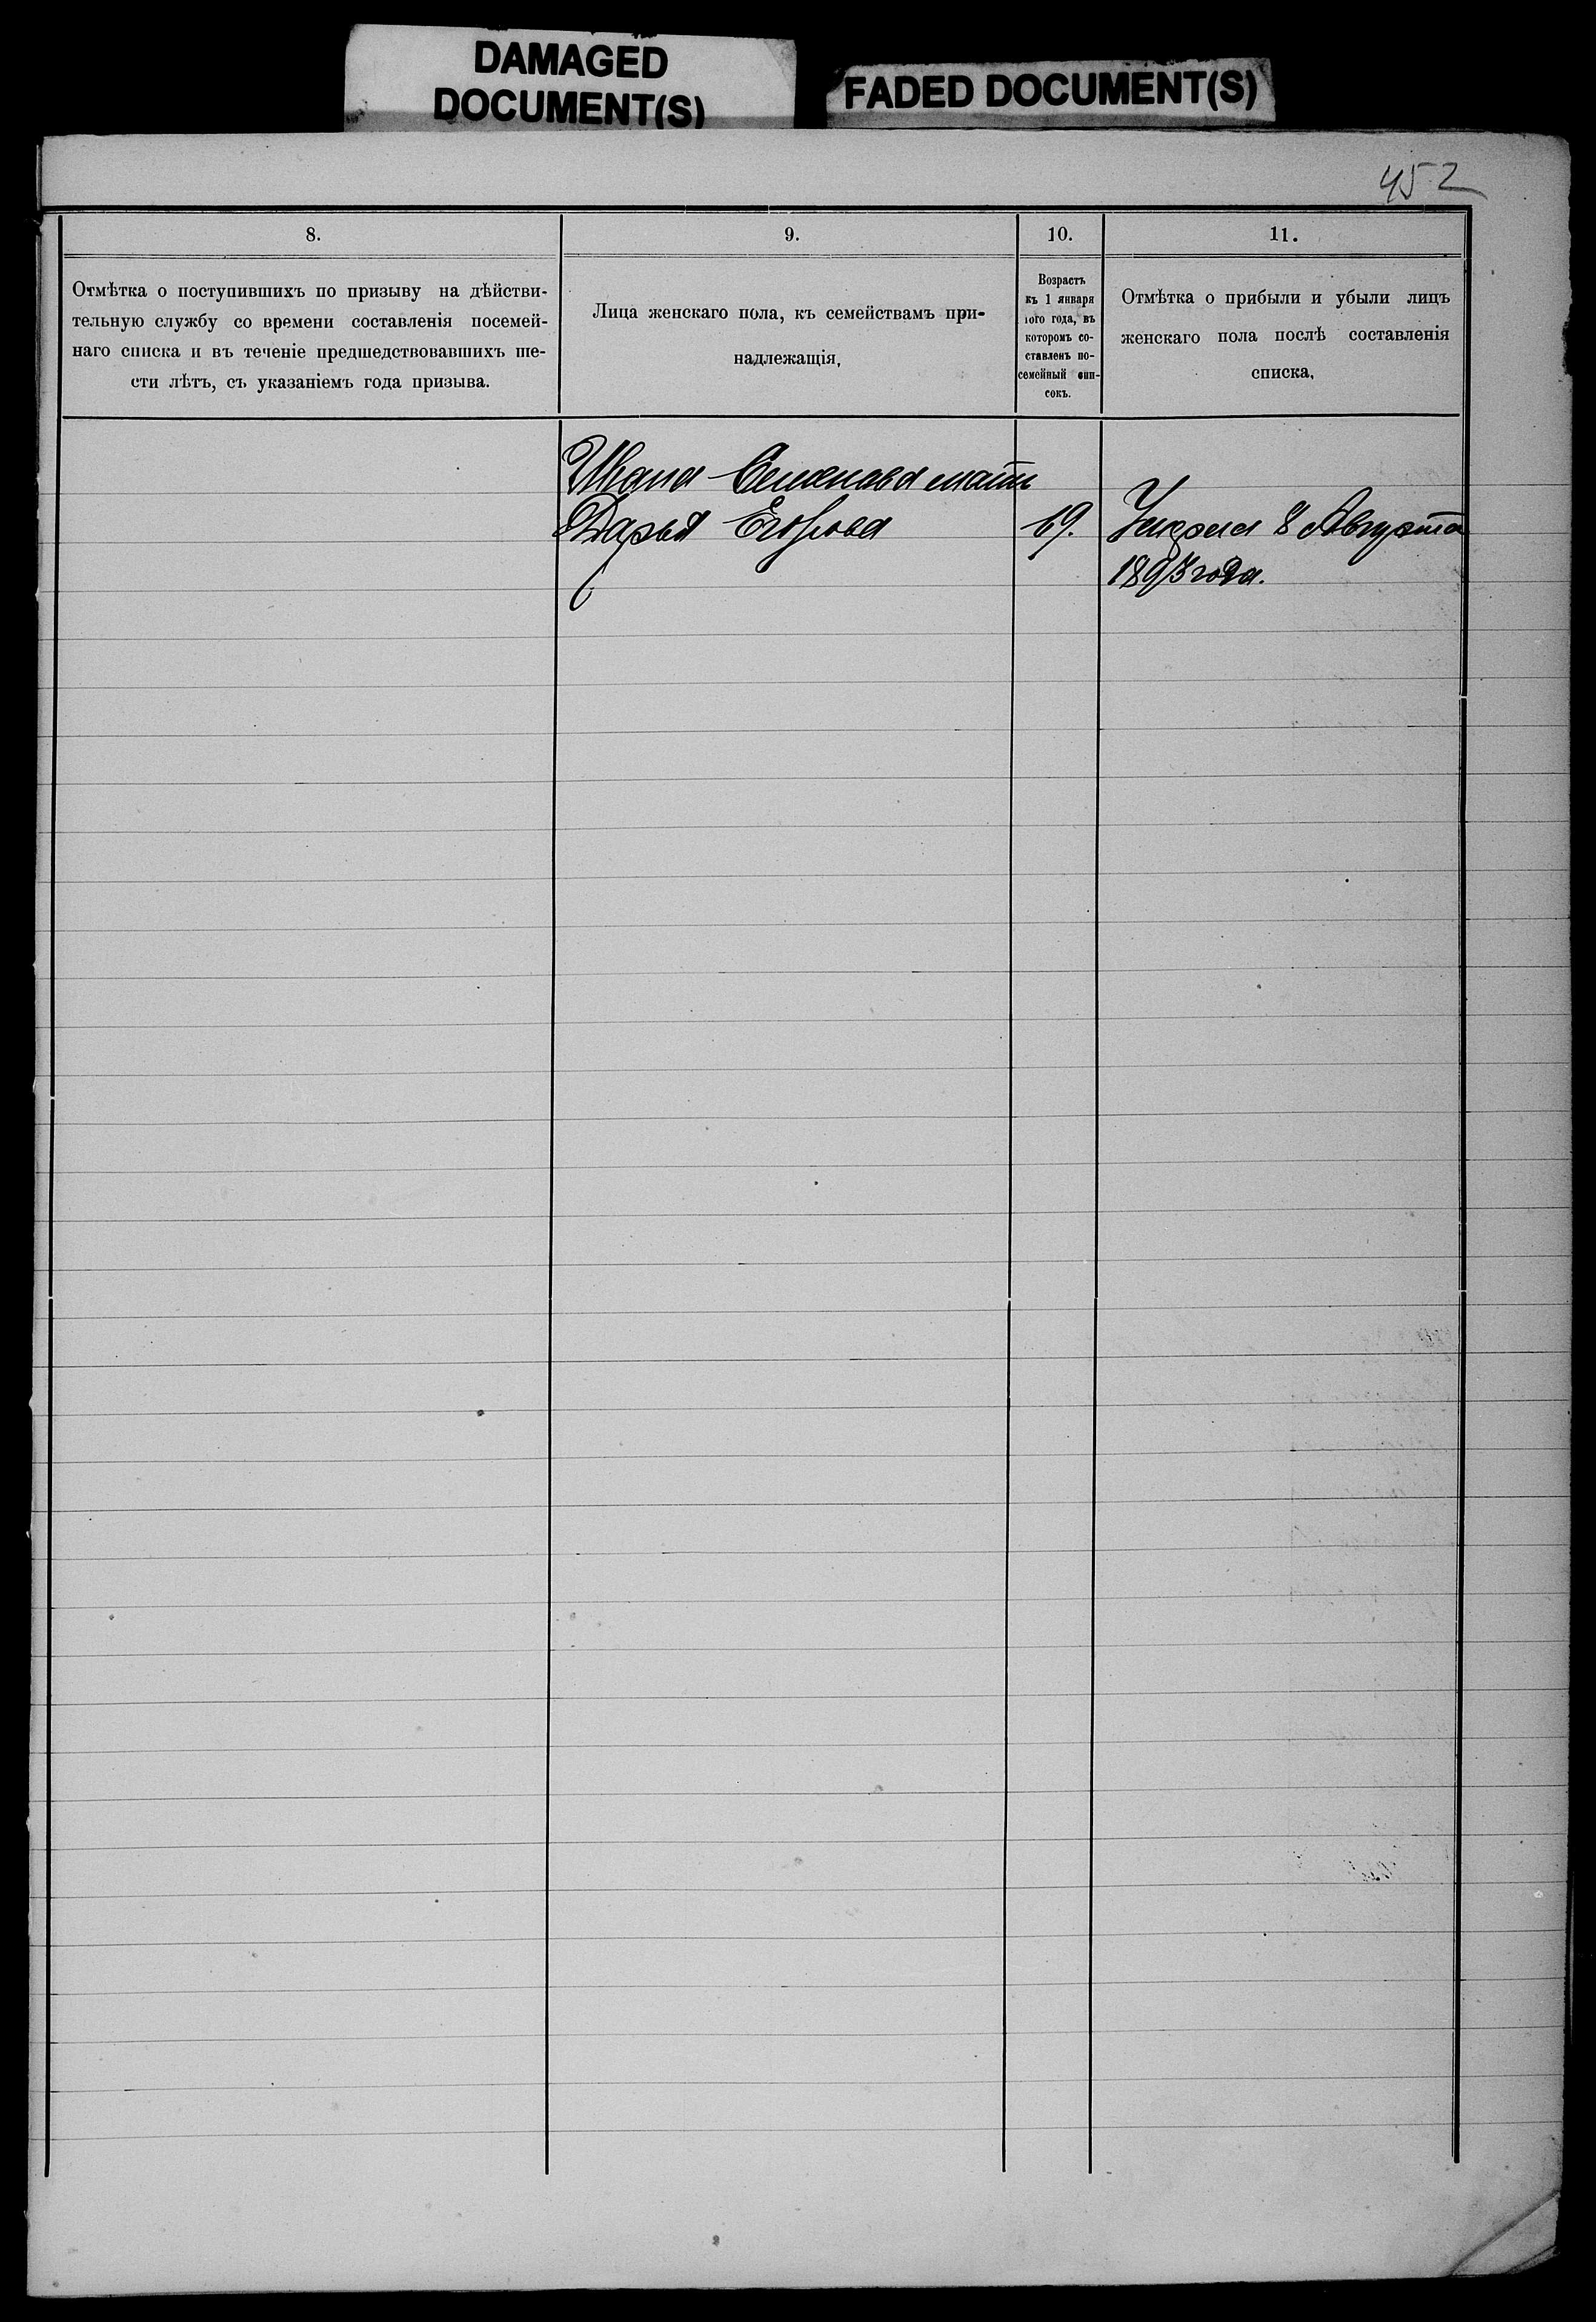 DAMAGED
DOCUMENT(S)
FADED DOCUMENT(S)
452
8.
Отмѣтка о поступившихъ по призыву на дѣйстви-
тельную службу со времени составленія посемей-
наго списка и въ теченіе предшедствовавшихъ ше-
сти лѣтъ, съ указаніемъ года призыва.
9.
Лица женскаго пола, къ семействамъ при-
надлежащія,
10.
Возрастъ
къ 1 января
того года, въ
которомъ со-
ставленъ по-
семейный спи-
сокъ.
11.
Отмѣтка о прибыли и убыли лицъ
женскаго пола послѣ составленія
списка,
Ивана Семенова мать
Дарья Егорова
69.
Умерла 8 Августа
1893 года.